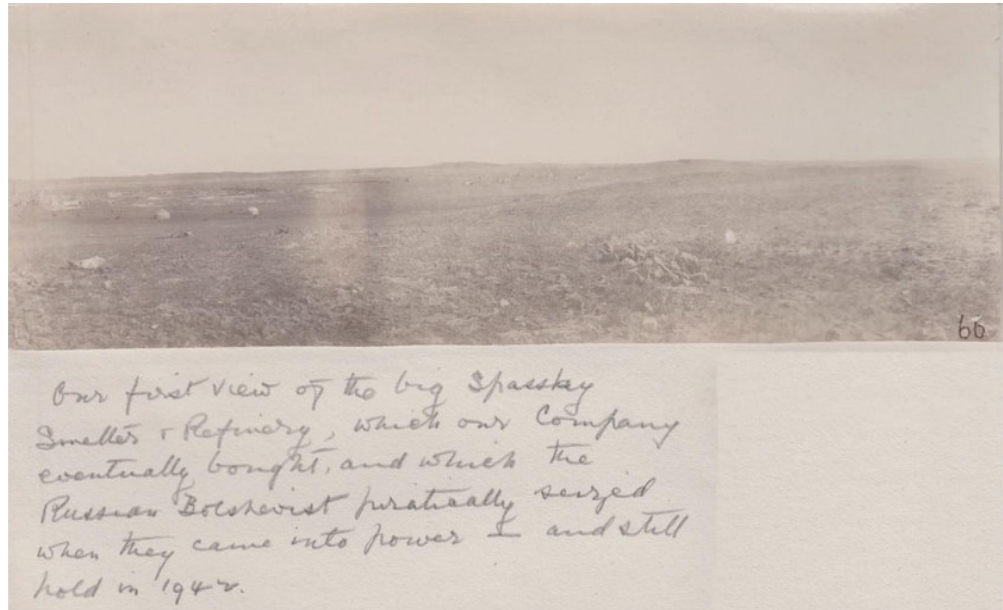 66
Our first view of the big Spasskey
Smelter & Refinery, which our Company
eventually bought, and which the
Russian Bolshevist piratically seized
when they came into power — and still
hold in 1942.